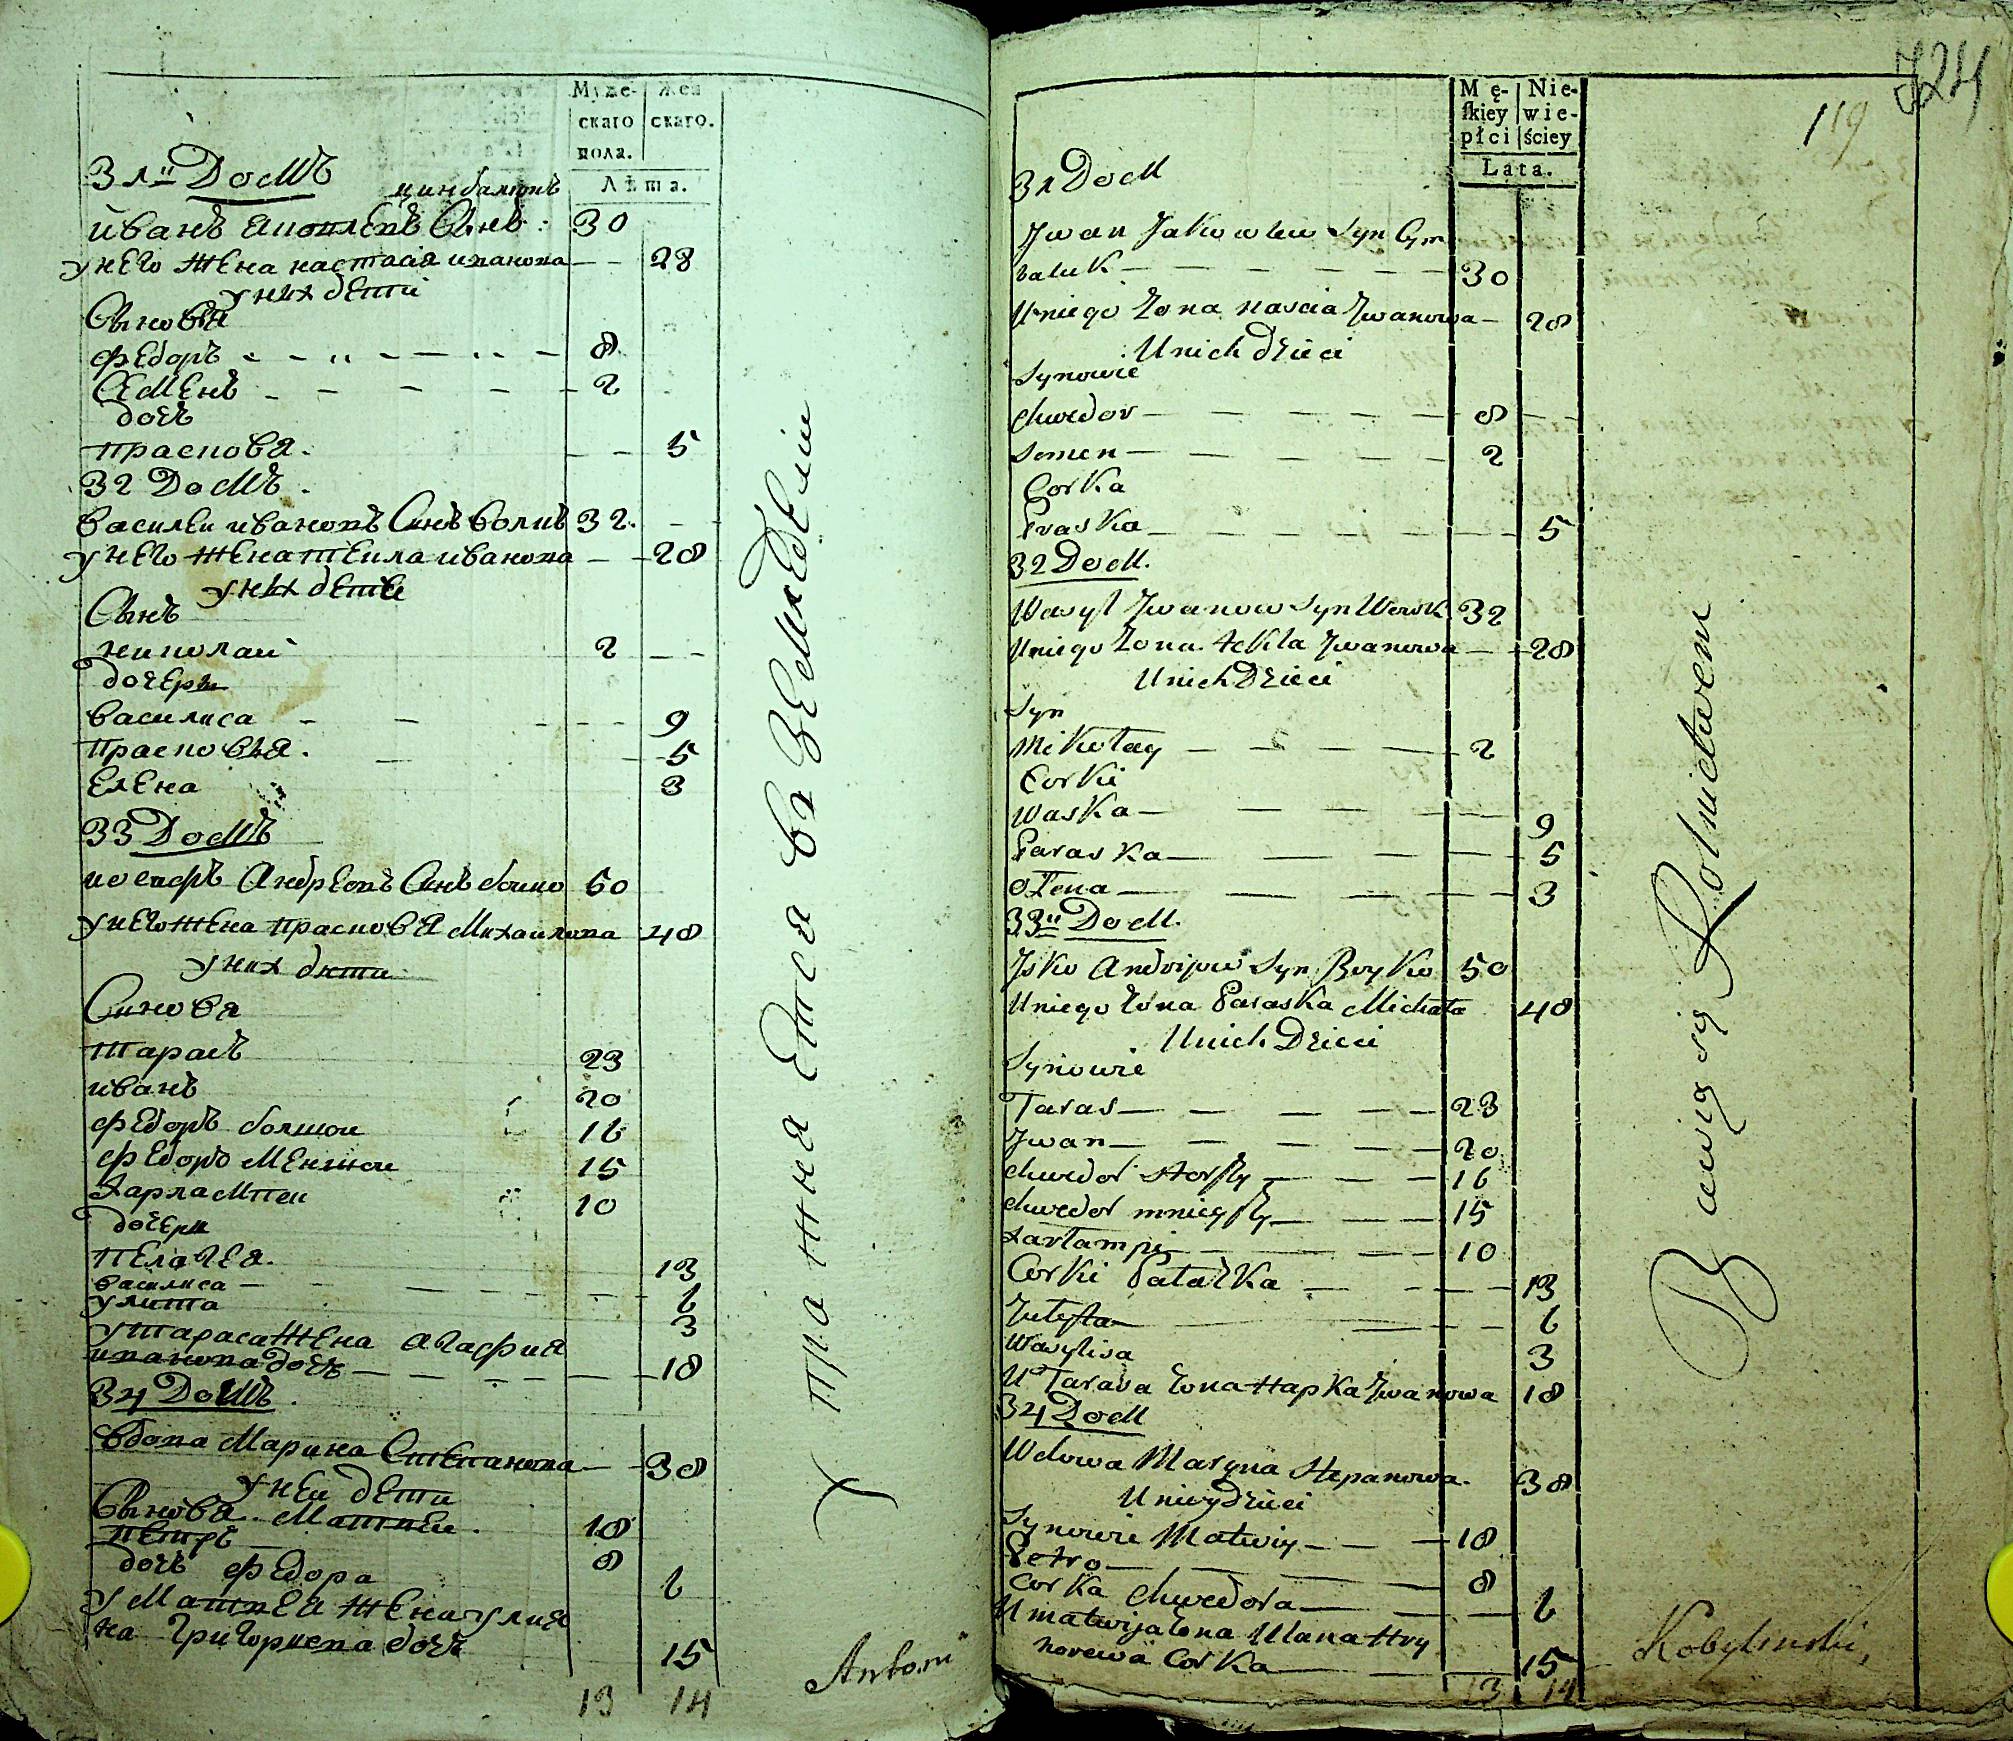 Муже-
скаго
пола.
Жен
скаго.
Лѣта.
31й Домъ
цинбалюкъ
иванъ яковлевъ Сынъ: 30
у него жена настасія иванова 28
у них дети
Сыновя
федоръ 8
Семенъ 2
дочь
прасковя. 5
32 Домъ.
василеи ивановъ Синъ волкъ 32.
у него жена текла иванова 28
у них дети
Сынъ
николаи 2
дочери
василиса 9
прасковья. 5
елена 3
33 Домъ
иосифъ Андреевъ Синъ боико 50
у него жена прасковя Михаилова 48
у них дети
Синовя
тарасъ 23
иванъ 20
федоръ болшои 16
федоръ меншои 15
харлампеи 10
дочери
пелагея. 13
василиса 6
улита 3
у тараса жена агафия
иванова дочь 18
34 Домъ.
вдова Марина Степанова 38
у неи дети
Сыновя. Матвеи. 18
петръ 8
дочь федора 6
у Матвея жена улия
на григориева дочь 15
13 14
Х пранная Ется въ ЗЕМЛЕДѢЛИИ
Antoni
724
119
Mę-
ſkiey
płci
Nie-
wie-
ściey
Lata.
31 Dom
Jwan Jakowlew Syn Cym
baluk 30
U niego Żona Nascia Jwanowa 28
U nich dzieci
Synowie
Chwedor 8
Semen 2
Corka
Praska 5
32 Dom.
Wasyl Jwanow Syn Wowk 32
U niego Żona Tekla Jwanowa 28
U nich Dzieci
Syn
Mikołay 2
Corki
Waska 9
Paraska 5
Ołena 3
33й Dom.
Jsko Andrijow Syn Boyko 50
U niego Żona Paraska Michała 48
U nich Dzieci
Synowie
Taras 23
Jwan 20
Chwedor storſzy 16
Chwedor mnieyſzy 15
Harlampi 10
Corki Palażka 13
Julyta 6
Wasylisa 3
U Tarasa Żona Hapka Jwanowa 18
34 Dom
Wdowa Maryna Stepanowa. 38
U niey Dzieci
Synowie Matwiy 18
Petro 8
Corka Chwedora 6
U Matwija Żona Ulana Hry
horewa Corka 15
13 14
Bawią się Rolnictwem
Kobylinski,